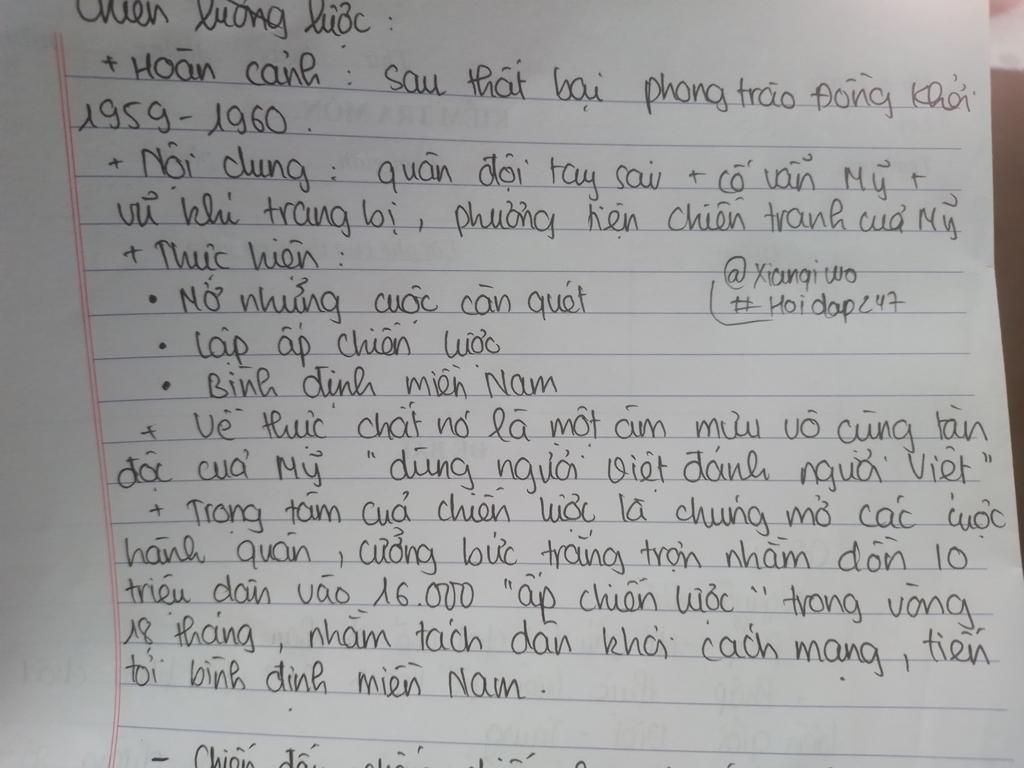 Chiến lường lược :
+ Hoàn cảnh : sau thất bại phong trào Đồng Khởi
1959 - 1960 .
+ Nội dung : quân đội tay sai + cố vấn Mỹ +
vũ khí trang bị , phương tiện chiến tranh của Mỹ
+ Thực hiện :
@Xiangiwo
• Mở những cuộc càn quét
#Hoidap247
• Lập ấp chiến lược
• Bình định miền Nam
+ Về thực chất nó là một âm mưu vô cùng tàn
độc của Mỹ " dùng người Việt đánh người Việt "
+ Trọng tâm của chiến lược là chúng mở các cuộc
hành quân , cưỡng bức trắng trợn nhằm dồn 10
triệu dân vào 16.000 " ấp chiến lược " trong vòng
18 tháng , nhằm tách dân khỏi cách mạng , tiến
tới bình định miền Nam .
- Chiến đấu